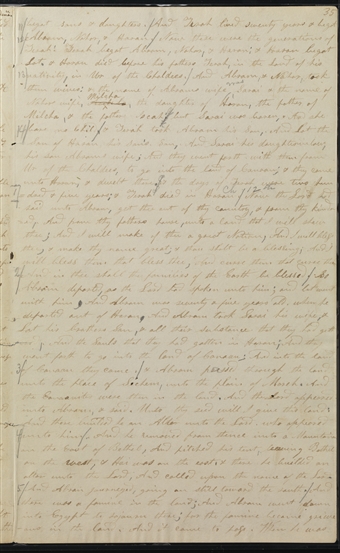 35
begat sons & daughters. And Terah lived seventy years & begat
Abram, Nahor, & Haran. Now these were the generations of
Terah: Terah begat Abram, Nahor, & Haran; & Haran begat
Lot. & Haran died before his father Terah, in the land of his
nativity, in Ur of the Chaldees. And Abram, & Nahor, took
them wives; the name of Abrams wife, Sarai & the name of
Milcha
Nahor wife, the daughter of Haran, the father of
Milcha, & the father But Sarai was barren. And she
have no Child. & Terah took Abram his son, And Lot the
son of Haran his Sons Son, And Sarai his daughter in law,
his son Abrams wife; And they went forth with them from
Ur of the Chaldees, to go into the land of Canaan; & they came
unto Haran, & dwelt there. the days of Terah were two hun
dred & five years; & Terah died in Haran. Now the Lord had
said unto Abram, get thee out of thy country, & from thy kind
red, And from thy fathers house, unto a land that I will shew
thee; And I will make of thee a great Nation, And I will bless
thee, & make thy name great, & thou shalt be a blessing, And I
will bless them that bless thee, And curse them that curse thee
And in thee shall the families of the Earth be blessed. So
Abram departed, as the Lord had spoken unto him; and Lot went
with him, And Abram was seventy & five years old, when he
departed out of Haran, And Abram took Sarai his wife, &
Lot his brothers Son, & all their substance that they had gath
And the Souls that they had gotten in Haran; And they
went forth to go into the land of Canaan; And into the land
of Canaan they came. & Abram passed through the land
unto the place of Sichem, unto the plains of Moreh. And
the Canaanite were then in the land. And the Lord appeared
unto Abram, & said, Unto thy seed will I give this land:
And there builded he an Altar unto the Lord, who appeared
unto him. And he removed from thence unto a Mountain
on the East of Bethel, And pitched his tent, Bethel
on the west, & Hai was on the east & there he builded an
altar unto the Lord, And called upon the name of the Lord
And Abram journeyed, going on still toward the south. And
there was a famine in the land; And Abram went down
into Egypt to sojourn there; for the famine
in the land. And it came to pass. When he was